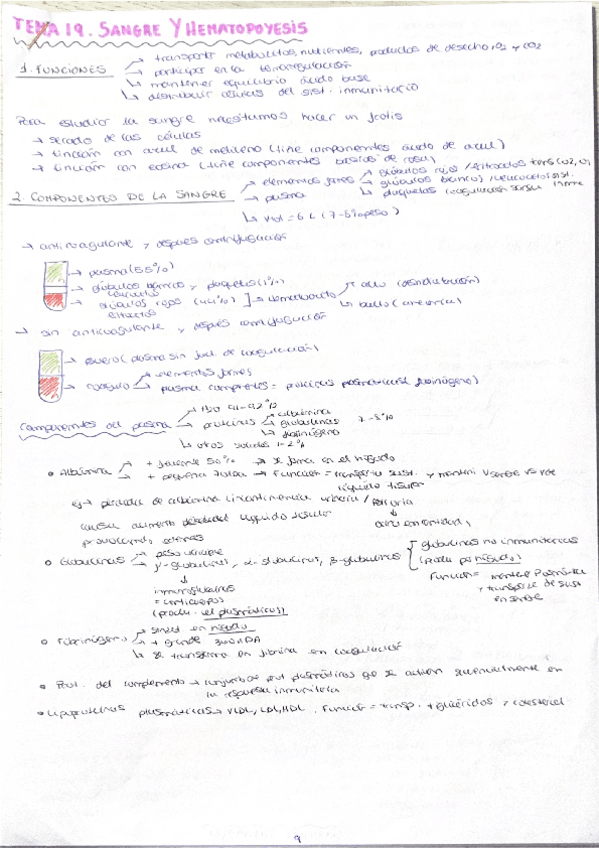 TEMA 19. SANGRE Y HEMATOPOYESIS
→ transportar metabolitos, nutrientes, productos de desecho, O2 y CO2
1. FUNCIONES → participar en la termorregulación
→ mantener equilibrio ácido base
→ distribuir células del sist. inmunitario
Para estudiar la sangre necesitamos hacer un frotis
→ secado de las células
→ tinción con azul de metileno (tiñe componentes ácido de azul)
→ tinción con eosina (tiñe componentes básicos de rosa)
→ elementos formes → glóbulos rojos / eritrocitos
2. COMPONENTES DE LA SANGRE → glóbulos blancos / leucocitos
→ plasma → plaquetas
→ Vol = 6 L (7-8% peso)
→ anticoagulante y después centrifugación
→ plasma (55%)
→ glóbulos blancos y plaquetas (1%)
→ glóbulos rojos (44%) ] → hematocrito → alto (deshidratación)
eritrocitos → bajo (anemia)
→ sin anticoagulante y después centrifugación
→ suero (plasma sin fact. de coagulación)
→ coágulo → elementos formes
→ plasma componentes = proteínas plasmáticas
Componentes del plasma → H2O 91-92%
→ proteínas → albúmina
→ globulinas 7-8%
→ fibrinógeno
→ otros solutos 1-2%
• Albúmina → + frecuente 50% → se forma en el hígado
→ + pequeña → Función = transporta sust. y
líquido tisular
ej → pérdida de albúmina
causa aumento líquido tisular
provocando edemas
• Globulinas → peso variable
→ γ-globulinas, α-globulinas, β-globulinas { globulinas no inmunitarias
↓ (produ. por hígado)
inmunoglobulinas Función =
= anticuerpos
(produ. cel plasmáticas) en sangre
• Fibrinógeno → sintet en hígado
→ + grande
→ se transforma en fibrina en coagulación
• Prot. del complemento → conjunto de prot plasmáticas que se activan secuencialmente en
la respuesta inmunitaria
• Lipoproteínas plasmáticas → VLDL, LDL, HDL. Función = transp. triglicéridos y colesterol
9